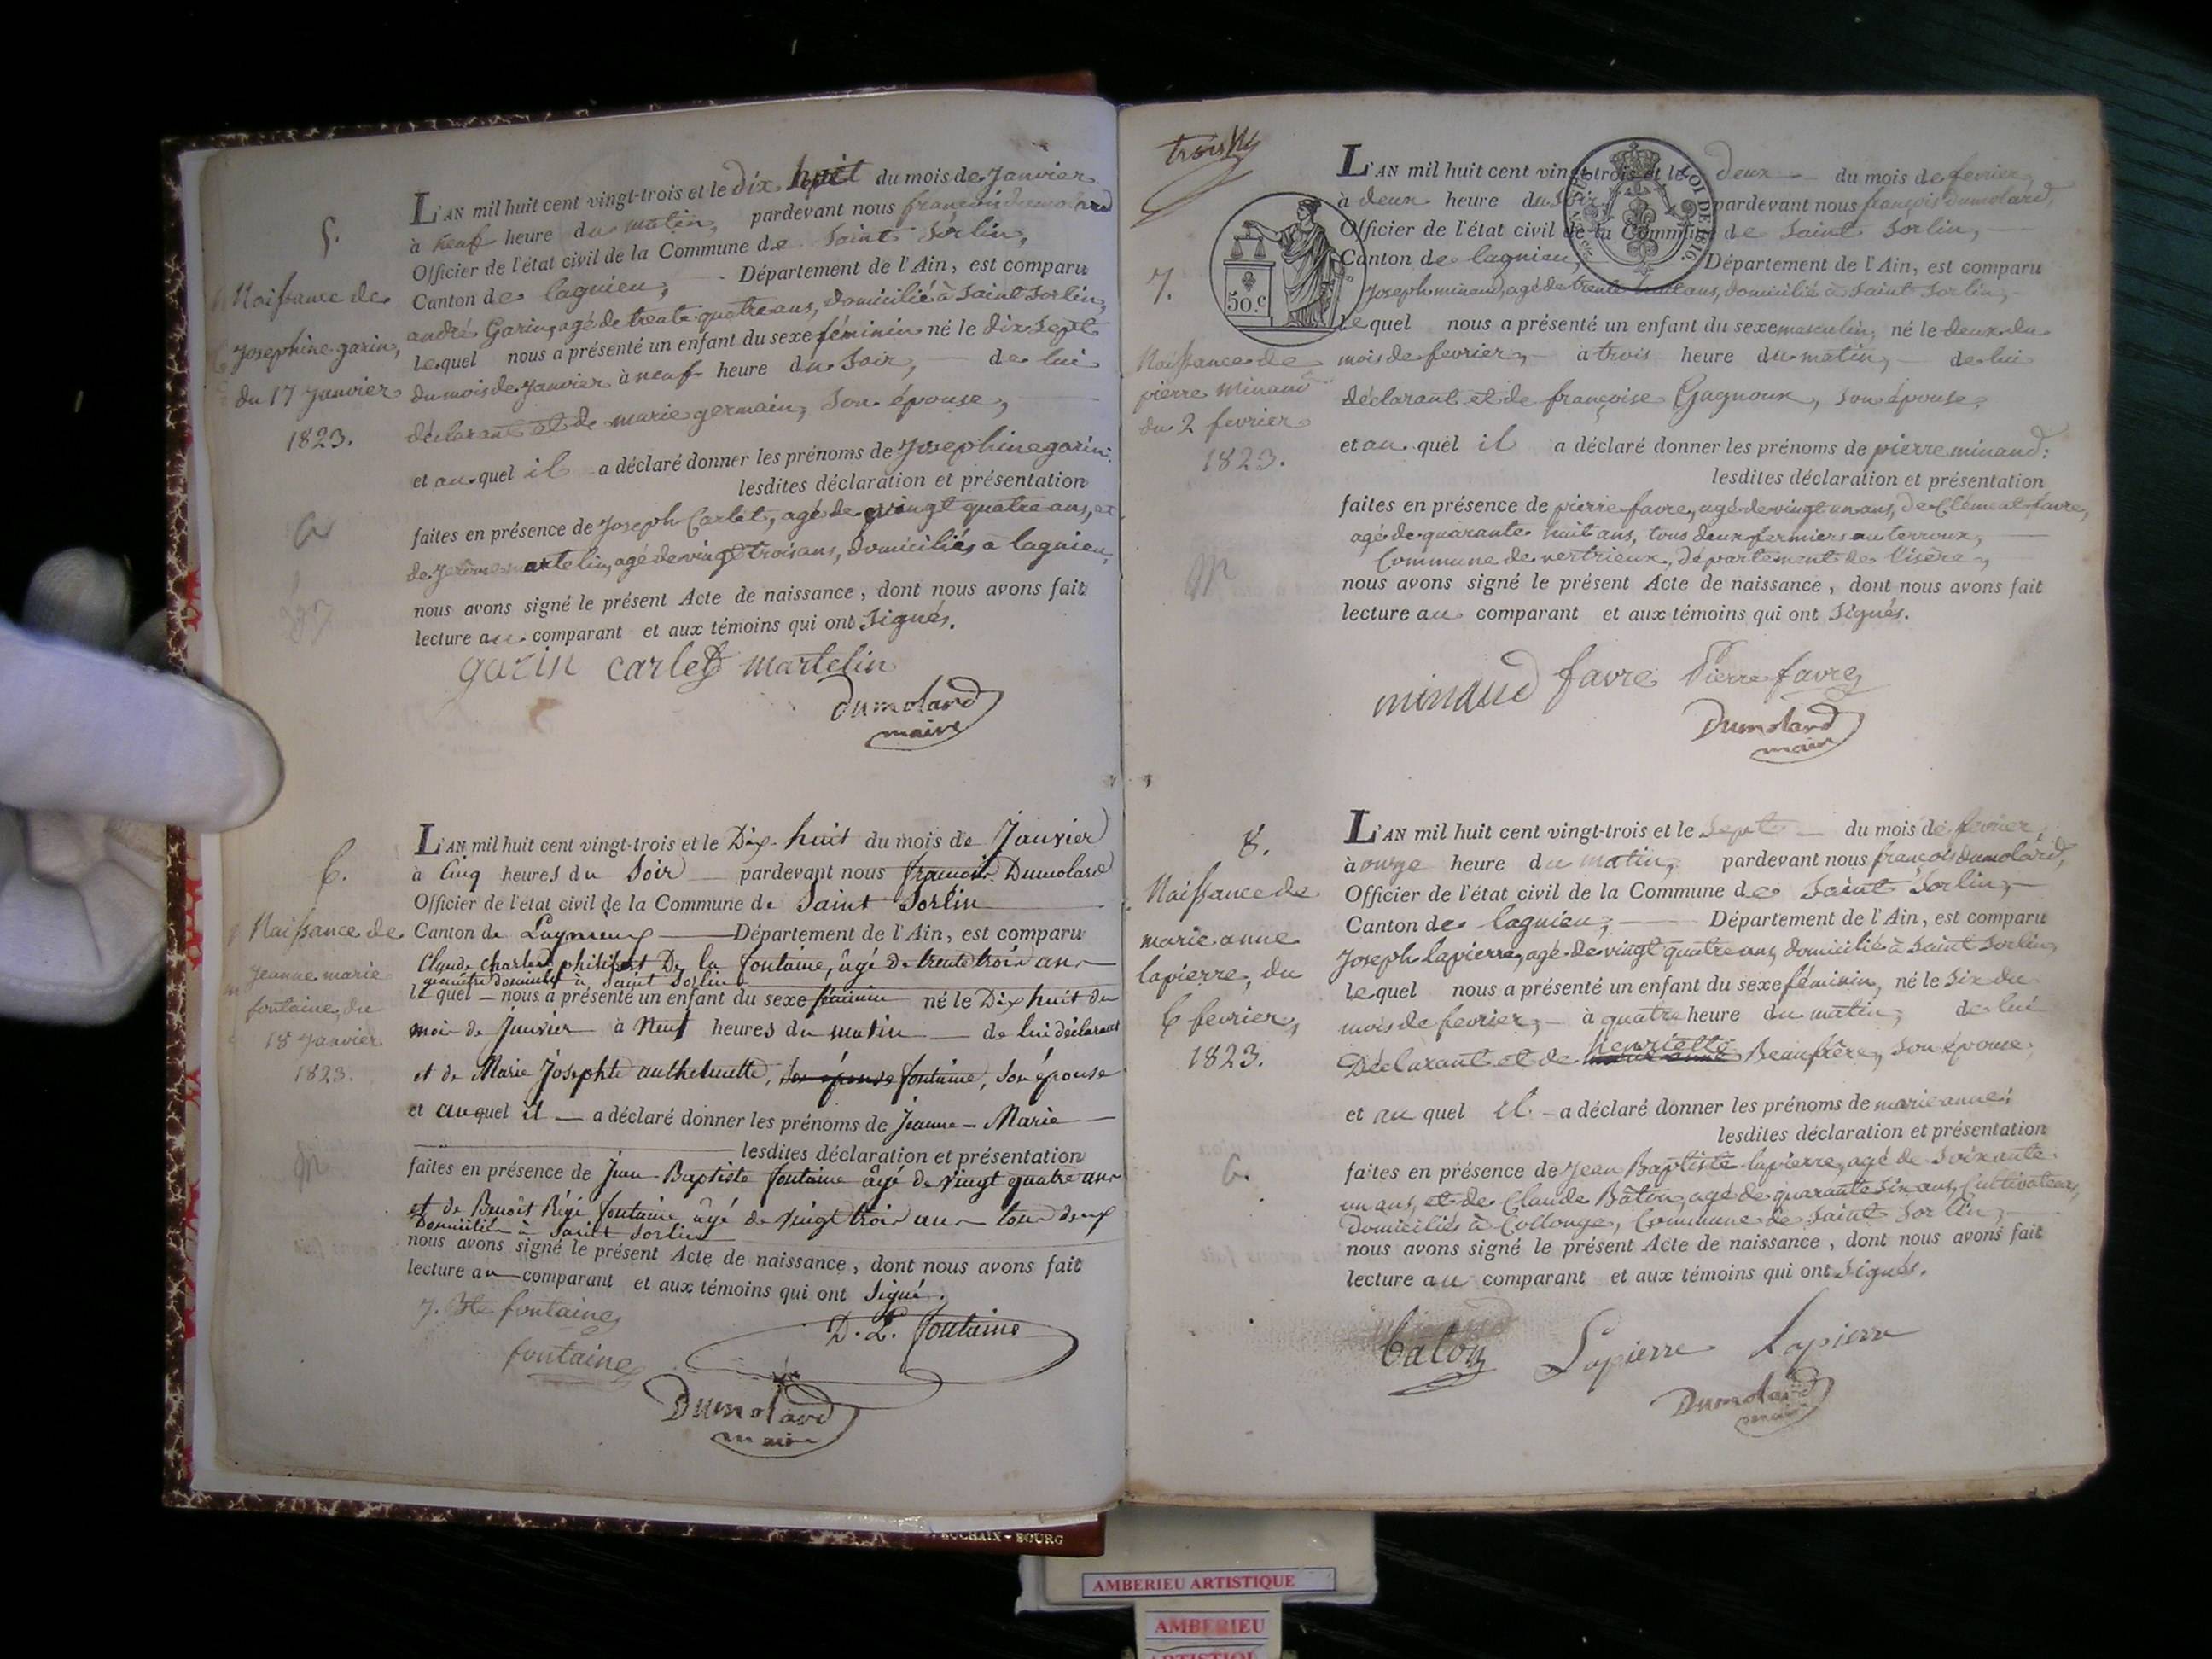 5.
Naissance de
Josephine garin,
du 17 Janvier
1823.
L'AN mil huit cent vingt-trois et le dix huit du mois de Janvier
à neuf heure du matin, pardevant nous françois dumolard
Officier de l'état civil de la Commune de Saint Sorlin,
Canton de lagnieu, Département de l'Ain, est comparu
andré Garin, agé de trente quatre ans, domicilié à Saint Sorlin,
lequel nous a présenté un enfant du sexe féminin né le dix sept
du mois de Janvier à neuf heure du Soir, de lui
déclarant et de marie germain, Son épouse,
et au quel il a déclaré donner les prénoms de Josephine garin.
lesdites déclaration et présentation
faites en présence de Joseph Carlet, agé de vingt quatre ans, et
de Jerôme martelin, agé de vingt trois ans, domiciliés a lagnieu,
nous avons signé le présent Acte de naissance, dont nous avons fait
lecture au comparant et aux témoins qui ont Signés.
garin carlet martelin
Dumolard
maire
6.
Naissance de
jeanne marie
fontaine, du
18 Janvier
1823.
L'AN mil huit cent vingt-trois et le Dix-huit du mois de Janvier
à Cinq heures du Soir pardevant nous françois Dumolard
Officier de l'état civil de la Commune de Saint Sorlin
Canton de Lagnieux Département de l'Ain, est comparu
Claude charles philibert De la fontaine, âgé de trente trois ans
domicilié à Saint Sorlin
le quel nous a présenté un enfant du sexe féminin né le Dix huit du
mois de Janvier à Neuf heures du matin de lui déclarant
et de Marie Josephte anthelmette, son épouse fontaine, son épouse
et auquel il a déclaré donner les prénoms de Jeanne-Marie
lesdites déclaration et présentation
faites en présence de Jean Baptiste fontaine âgé de vingt quatre ans
et de Benoît Régi fontaine âgé de vingt trois ans tous deux
Domiciliés à Saint Sorlin
nous avons signé le présent Acte de naissance, dont nous avons fait
lecture au comparant et aux témoins qui ont Signé.
J. Bte fontaine
D. L. fontaine
fontaine
Dumolard
maire
trois
50.c
LOI DE 1816.
7.
Naissance de
pierre Minand
du 2 fevrier
1823.
L'AN mil huit cent vingt-trois et le deux du mois de fevrier,
à deux heure du soir, pardevant nous françois dumolard,
Officier de l'état civil de la Commune de Saint Sorlin,
Canton de lagnieu, Département de l'Ain, est comparu
Joseph minand, agé de trente huit ans, domicilié à Saint Sorlin,
lequel nous a présenté un enfant du sexe masculin, né le deux du
mois de fevrier, à trois heure du matin, de lui
déclarant et de françoise Gagnoux, son épouse,
et au quel il a déclaré donner les prénoms de pierre minand:
lesdites déclaration et présentation
faites en présence de pierre favre, agé de vingt un ans, de Clément favre,
agé de quarante huit ans, tous deux fermiers au terroux,
Commune de vertrieux, département de l'isère,
nous avons signé le présent Acte de naissance, dont nous avons fait
lecture au comparant et aux témoins qui ont Signés.
minand favre Pierre favre
Dumolard
maire
8.
Naissance de
marie anne
lapierre, du
6 fevrier,
1823.
L'AN mil huit cent vingt-trois et le Sept du mois de fevrier,
à onze heure du matin, pardevant nous françois dumolard,
Officier de l'état civil de la Commune de Saint Sorlin,
Canton de lagnieu, Département de l'Ain, est comparu
Joseph lapierre, agé de vingt quatre ans, domicilié à Saint Sorlin,
lequel nous a présenté un enfant du sexe féminin, né le Six du
mois de fevrier, à quatre heure du matin, de lui
Déclarant et de henriette Beaufrère, Son épouse.
et au quel il a déclaré donner les prénoms de marie anne:
lesdites déclaration et présentation
faites en présence de Jean Baptiste lapierre, agé de Soixante
un ans, et de Claude Bâton, agé de quarante Six ans, Cultivateurs,
domiciliés à Collonge, Commune de Saint Sorlin,
nous avons signé le présent Acte de naissance, dont nous avons fait
lecture au comparant et aux témoins qui ont Signés.
baton Lapierre Lapierre
Dumolard
maire
BOURG
AMBERIEU ARTISTIQUE
AMBERIEU
ARTISTIQUE